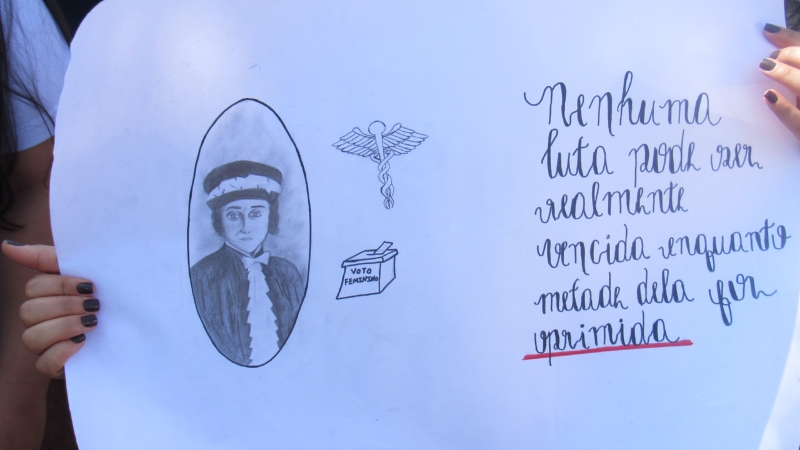 VOTO
FEMININO
Nenhuma
luta pode ser
realmente
vencida enquanto
metade dela for
oprimida